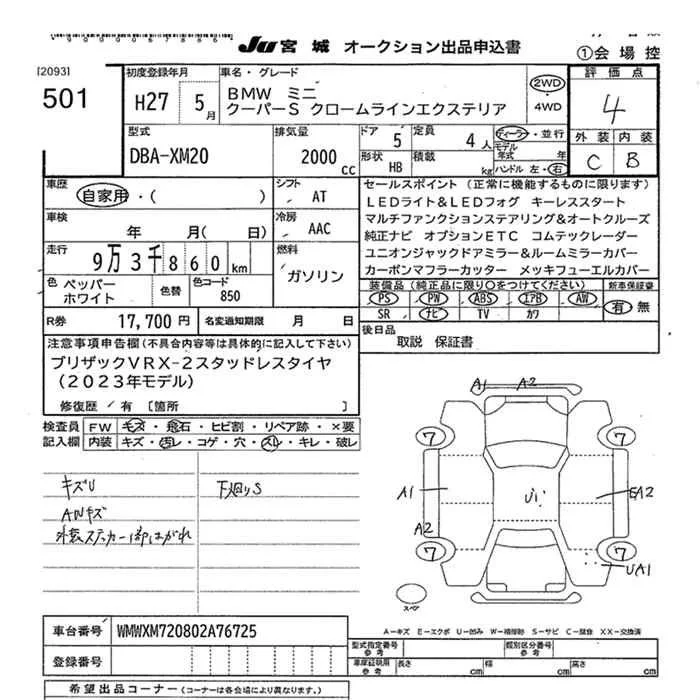 JU 宮城 オークション出品申込書
①会場控
[2093]
501
初度登録年月
H27 5月
車名・グレード
BMW ミニ
クーパーS クロームラインエクステリア
2WD
4WD
評価点
4
外装 内装
C B
型式
DBA-XM20
排気量
2000 cc
ドア 5
定員 4人
ディーラー・並行
モデル年式 年
形状 HB
積載 kg
ハンドル 左・右
車歴
自家用・( )
シフト
AT
車検
年 月( 日)
冷房
AAC
走行
9万3千860km
燃料
ガソリン
色 ペッパーホワイト
色替
色コード
850
R券 17,700円
名変通知期限 月 日
セールスポイント (正常に機能するものに限ります)
LEDライト&LEDフォグ キーレススタート
マルチファンクションステアリング&オートクルーズ
純正ナビ オプションETC コムテックレーダー
ユニオンジャックドアミラー&ルームミラーカバー
カーボンマフラーカッター メッキフューエルカバー
装備品 (純正品に限り○をつけてください)
新車保証書
PS PW ABS エアB AW
SR ナビ TV カワ
有 無
後日品
取説 保証書
注意事項申告欄(不具合内容等は具体的に記入して下さい)
ブリザックVRX-2スタッドレスタイヤ
(2023年モデル)
修復歴 / 有 〔箇所 〕
検査員記入欄
FW 毛ズ・飛石・ヒビ割・リペア跡・×要
内装 キズ・汚レ・コゲ・穴・スレ・キレ・破レ
キズU
AWキズ
外装ステッカー1部はがれ
下廻りS
A1 A2
7 7
A1
EA2
A2
7 7
UA1
スペア
A-キズ E-エクボ U-凹み W-補修跡 S-サビ C-腐食 XX-交換済
車台番号 WMWXM720802A76725
登録番号
型式指定番号 参考
類別区分番号 参考
車庫証明用 参考
長さ cm 幅 cm 高さ cm
希望出品コーナー (コーナーは各会場により異なります。)